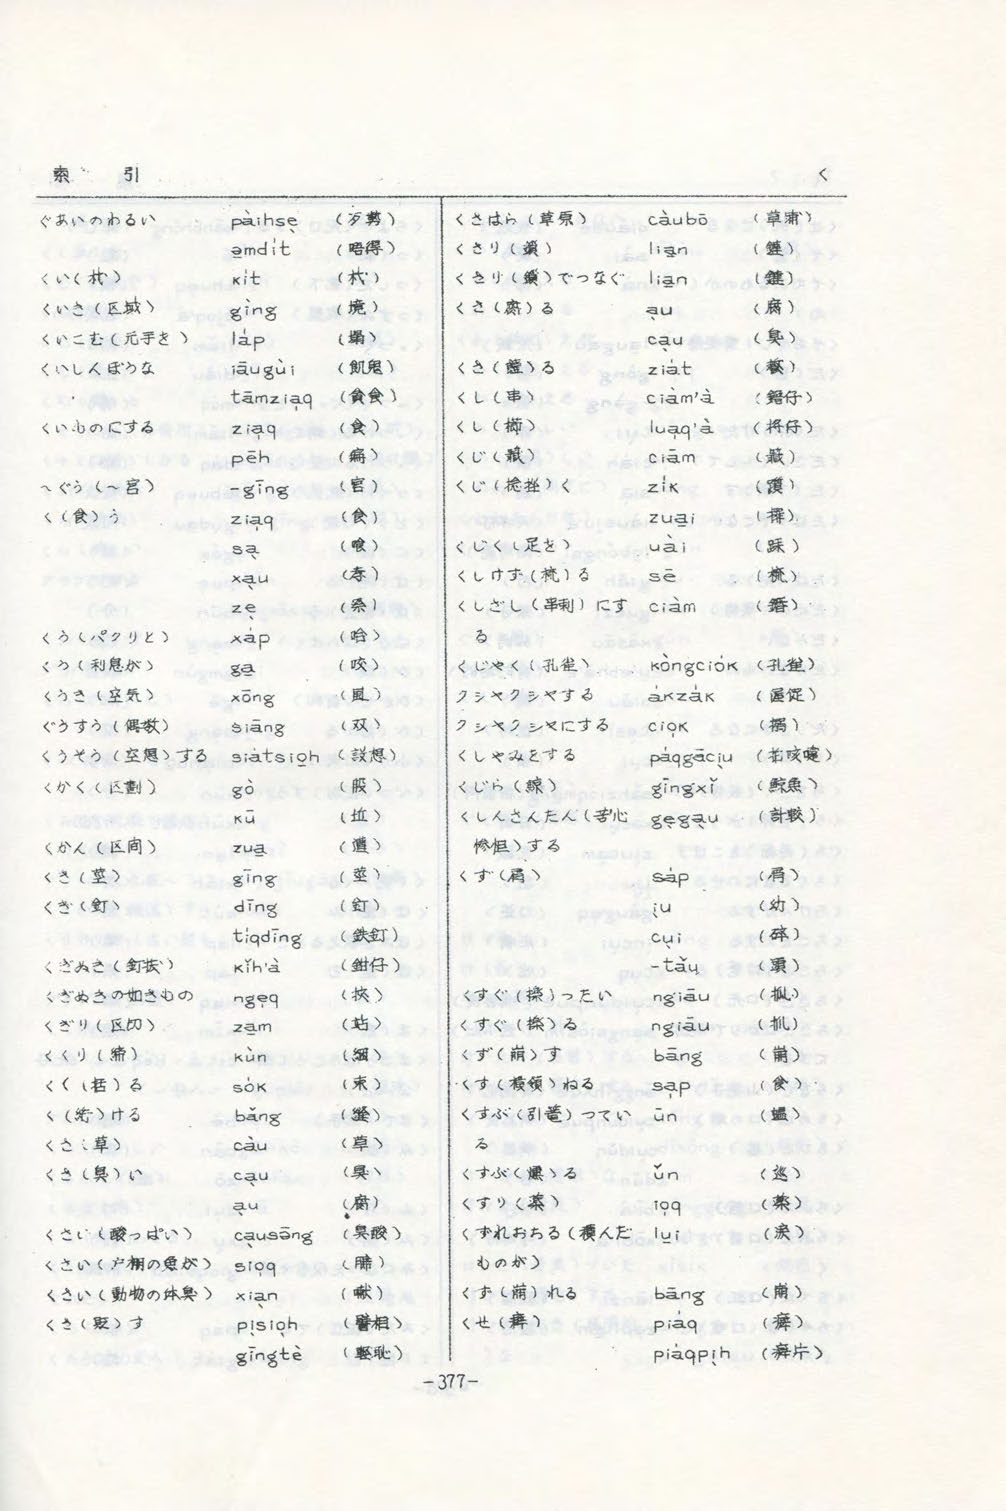 索 引 く
ぐあいのわるい pàihsẹ (歹勢)
ạmdi̍t (唔得)
くい(杙) ki̍t (杙)
くいき(区域) gìng (境)
くいこむ(元手を) la̍p (塌)
くいしんぼうな iāugùi (飢鬼)
tāmziạq (貪食)
くいものにする ziạq (食)
pēh (癖)
〜ぐう(〜宮) -gīng (宮)
く(食)う ziạq (食)
sạ (喰)
xạu (孝)
zẹ (祭)
くう(パクリと) xa̍p (哈)
くう(利息が) gạ (咬)
くうき(空気) xōng (風)
ぐうすう(偶数) siāng (双)
くうそう(空想)する siàtsiọh (設想)
くかく(区劃) gò (股)
kū (坵)
くかん(区間) zuạ
くき(茎) gīng (茎)
くぎ(釘) dīng (釘)
ti̍qdīng (鉄釘)
くぎぬき(釘抜) kǐh'à (鉗仔)
くぎぬきの如きもの ngẹq (挾)
くぎり(区切) zạm (站)
くくり(締) kùn (綑)
くく(括)る so̍k (束)
く(絎)ける bǎng (縫)
くさ(草) càu (草)
くさ(臭)い cạu (臭)
ạu (腐)
くさい(酸っぱい) cạusāng (臭酸)
くさい(戸棚の魚が) siọq
くさい(動物の体臭) xiạn
くさ(貶)す pịsiọh (譬相)
gīngtè (輕恥)
くさはら(草原) càubō (草埔)
くさり(鎖) liạn (鏈)
くさり(鎖)でつなぐ liạn (鏈)
くさ(腐)る ạu (腐)
cạu (臭)
zia̍t
くし(串) ciàm'à
くし(櫛) luạq'à (捋仔)
くじ(籤) ciām (籤)
くじ(捻挫)く zi̍k
zuại
くじく(足を) uàị (跩)
くしけず(梳)る sē (梳)
くしざし(串刺)にす ciàm
る
くじゃく(孔雀) kòngcio̍k (孔雀)
クシャクシャする a̍kza̍k (齷齪)
クシャクシャにする ciọk
くしゃみをする pa̍qgāciụ
くじら(鯨) gīngxǐ (鯨魚)
くしんさんたん(苦心 gẹgạu (計較)
惨怛)する
くず(屑) sa̍p (屑)
ịu (幼)
cụi (碎)
-tǎu (頭)
くすぐ(擽)ったい ngiāu
くすぐ(擽)る ngiāu
くず(崩)す bāng (崩)
くす(横領)ねる sạp
くすぶ(引篭)ってい ūn
る
くすぶ(燻)る ǔn
くすり(薬) iọq (薬)
くずれおちる(積んだ lụi
ものが)
くず(崩)れる bāng (崩)
くせ(癖) pia̍q (癖)
pia̍qpịh (癖片)
-377-